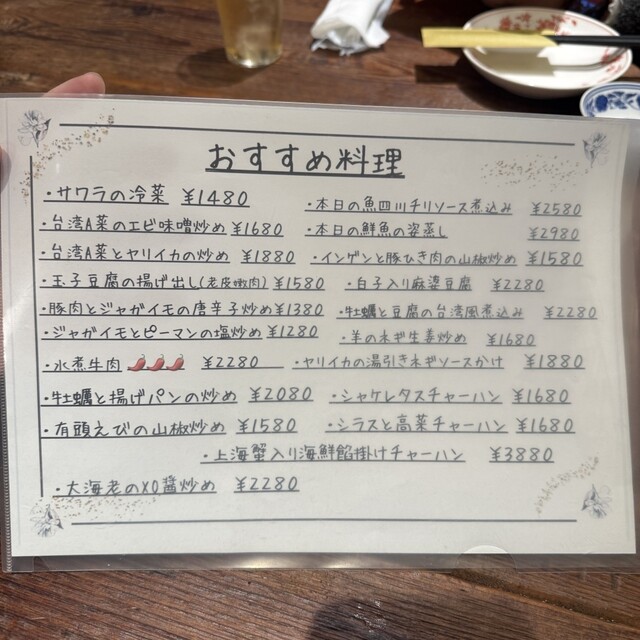 おすすめ料理
・サワラの冷菜 ¥1480
・台湾A菜のエビ味噌炒め ¥1680
・台湾A菜とヤリイカの炒め ¥1880
・玉子豆腐の揚げ出し(老皮嫩肉) ¥1580
・豚肉とジャガイモの唐辛子炒め ¥1380
・ジャガイモとピーマンの塩炒め ¥1280
・水煮牛肉 🌶️🌶️🌶️ ¥2280
・牡蠣と揚げパンの炒め ¥2080
・有頭えびの山椒炒め ¥1580
・本日の魚四川チリソース煮込み ¥2580
・本日の鮮魚の姿蒸し ¥2980
・インゲンと豚ひき肉の山椒炒め ¥1580
・白子入り麻婆豆腐 ¥2280
・牡蠣と豆腐の台湾風煮込み ¥2280
・羊のネギ生姜炒め ¥1680
・ヤリイカの湯引きネギソースかけ ¥1880
・シャケレタスチャーハン ¥1680
・シラスと高菜チャーハン ¥1680
・上海蟹入り海鮮餡掛けチャーハン ¥3880
・大海老のXO醤炒め ¥2280